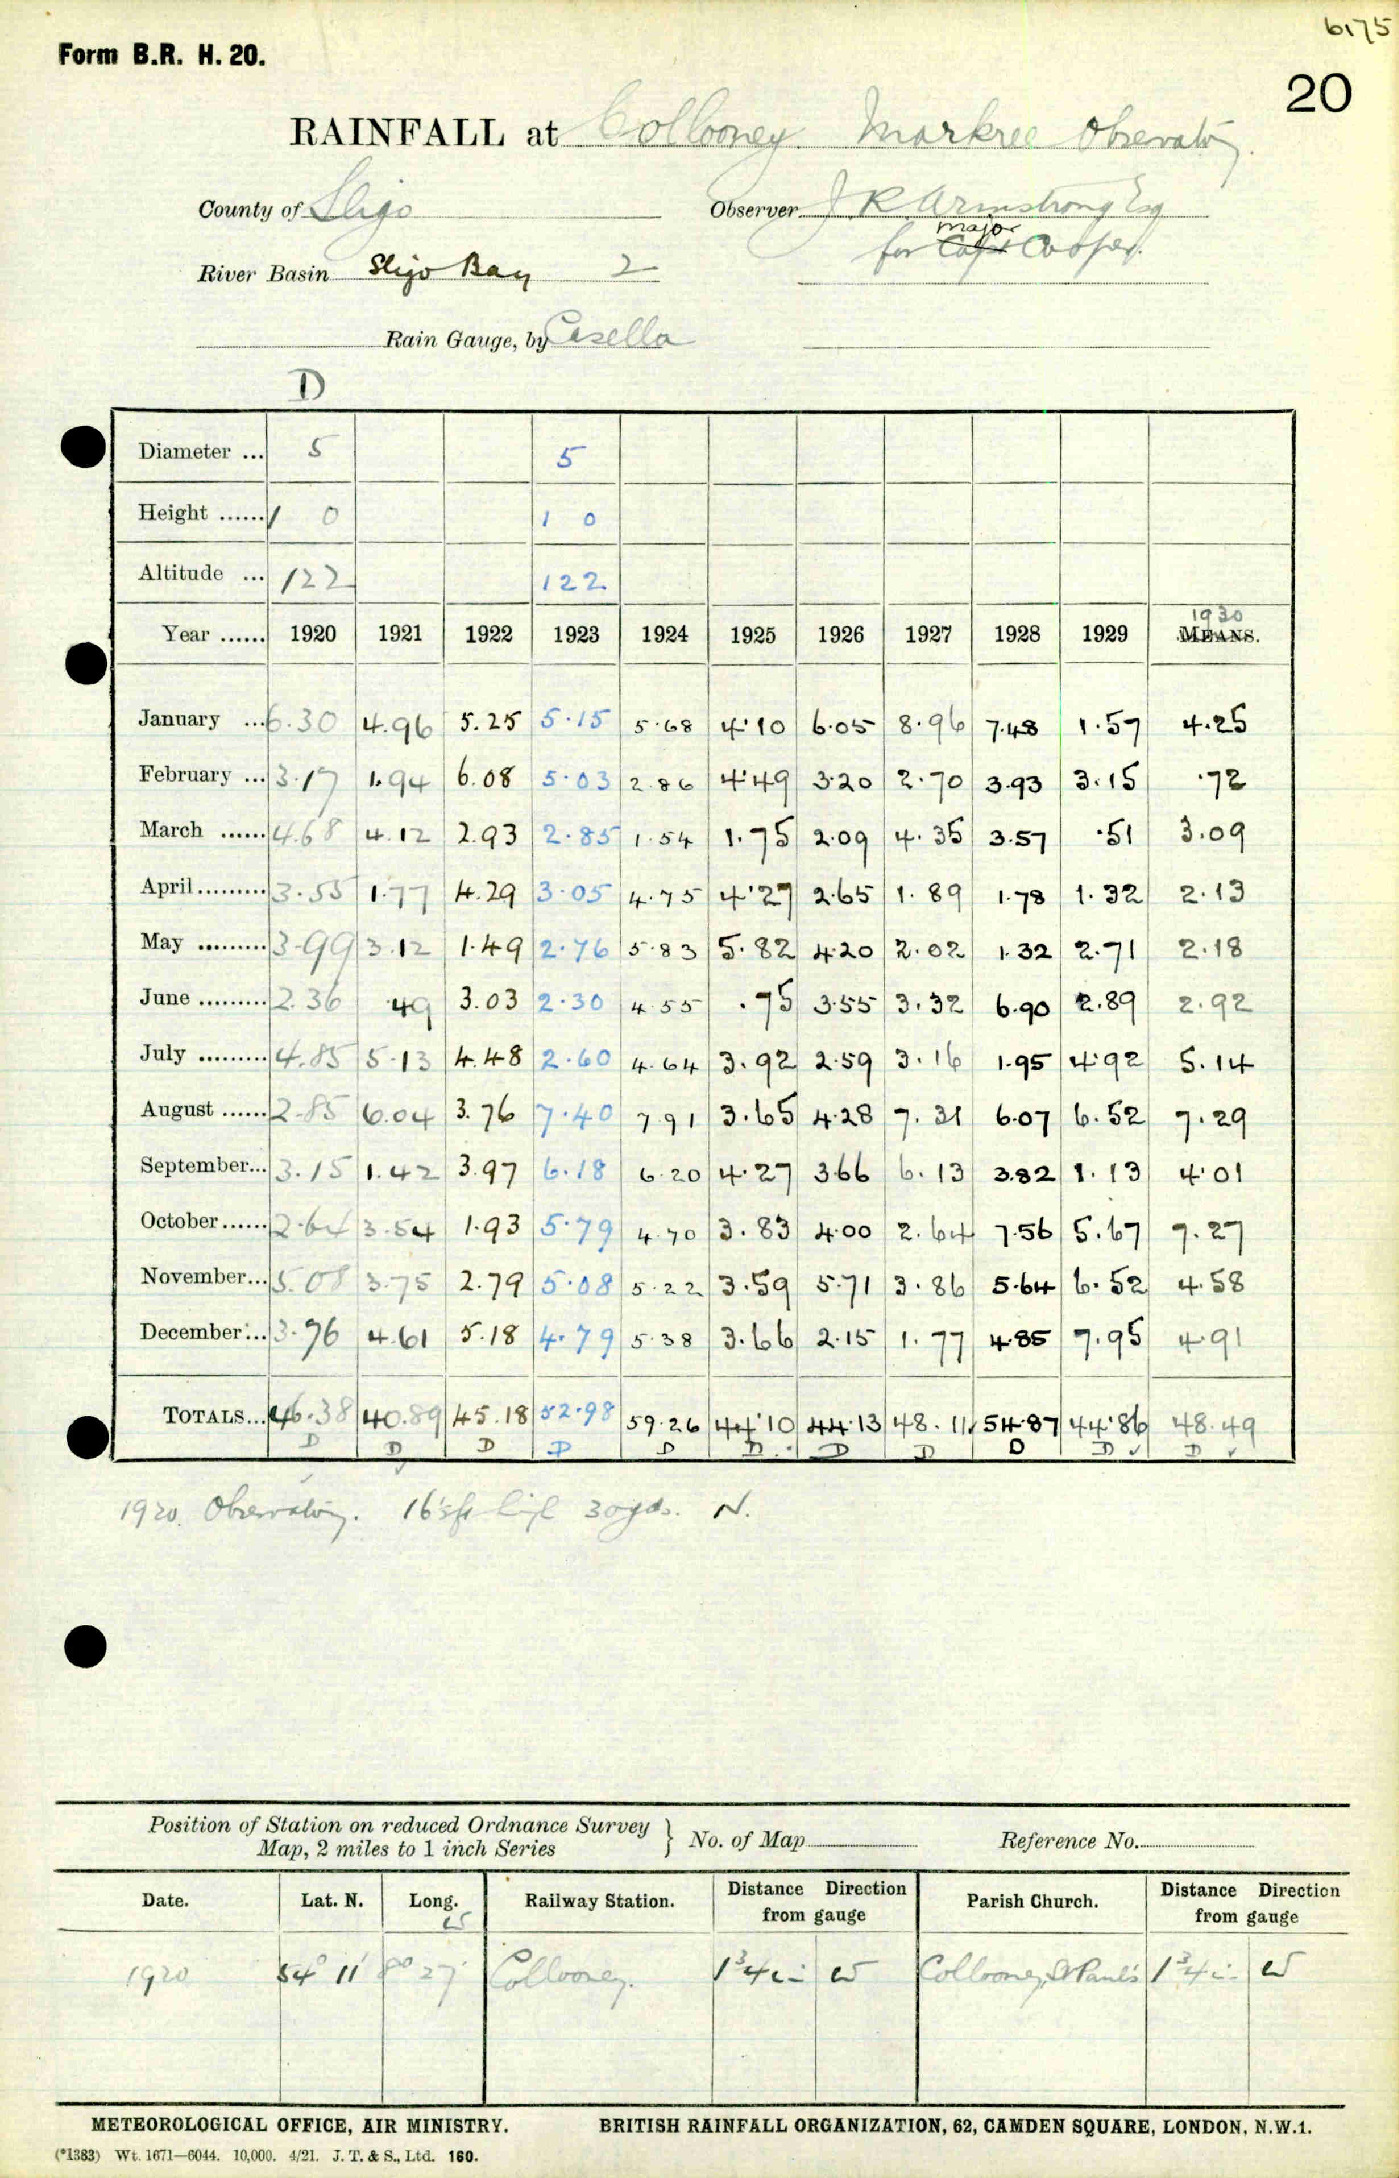 6175
Form B.R. H. 20.
20
RAINFALL at Collooney Markree Observatory
County of Sligo Observer J R Armstrong Esq
major
for Capt Cooper.
River Basin Sligo Bay 2
Rain Gauge, by Casella
D
Diameter ... 5 5
Height ...... 1 0 1 0
Altitude ... 122 122
1930
Year ...... 1920 1921 1922 1923 1924 1925 1926 1927 1928 1929 MEANS.
January ... 6.30 4.96 5.25 5.15 5.68 4.10 6.05 8.96 7.48 1.57 4.25
February ... 3.17 1.94 6.08 5.03 2.86 4.49 3.20 2.70 3.93 3.15 .72
March ...... 4.68 4.12 2.93 2.85 1.54 1.75 2.09 4.35 3.57 .51 3.09
April ......... 3.55 1.77 4.29 3.05 4.75 4.27 2.65 1.89 1.78 1.32 2.13
May ......... 3.99 3.12 1.49 2.76 5.83 5.82 4.20 2.02 1.32 2.71 2.18
June ......... 2.36 .49 3.03 2.30 4.55 .75 3.55 3.32 6.90 2.89 2.92
July ......... 4.85 5.13 4.48 2.60 4.64 3.92 2.59 3.16 1.95 4.92 5.14
August ...... 2.85 6.04 3.76 7.40 7.91 3.65 4.28 7.31 6.07 6.52 7.29
September... 3.15 1.42 3.97 6.18 6.20 4.27 3.66 6.13 3.82 1.13 4.01
October...... 2.64 3.54 1.93 5.79 4.70 3.83 4.00 2.64 7.56 5.67 7.27
November... 5.08 3.75 2.79 5.08 5.22 3.59 5.71 3.86 5.64 6.52 4.58
December... 3.76 4.61 5.18 4.79 5.38 3.66 2.15 1.77 4.85 7.95 4.91
TOTALS... 46.38 40.89 45.18 52.98 59.26 44.10 44.13 48.11 54.87 44.86 48.49
D D D D D D D D D D D
1920 Observatory. 16's ft high 30 yds. N.
Position of Station on reduced Ordnance Survey
Map, 2 miles to 1 inch Series } No. of Map Reference No.
Date. Lat. N. Long. Railway Station. Distance Direction from gauge Parish Church. Distance Direction from gauge
W
1920 54° 11' 8° 27' Collooney. 1 3/4 W Collooney, St Paul's 1 3/4 W
METEOROLOGICAL OFFICE, AIR MINISTRY. BRITISH RAINFALL ORGANIZATION, 62, CAMDEN SQUARE, LONDON, N.W.1.
(*1383) Wt. 1671—6044. 10,000. 4/21. J. T. & S., Ltd. 160.